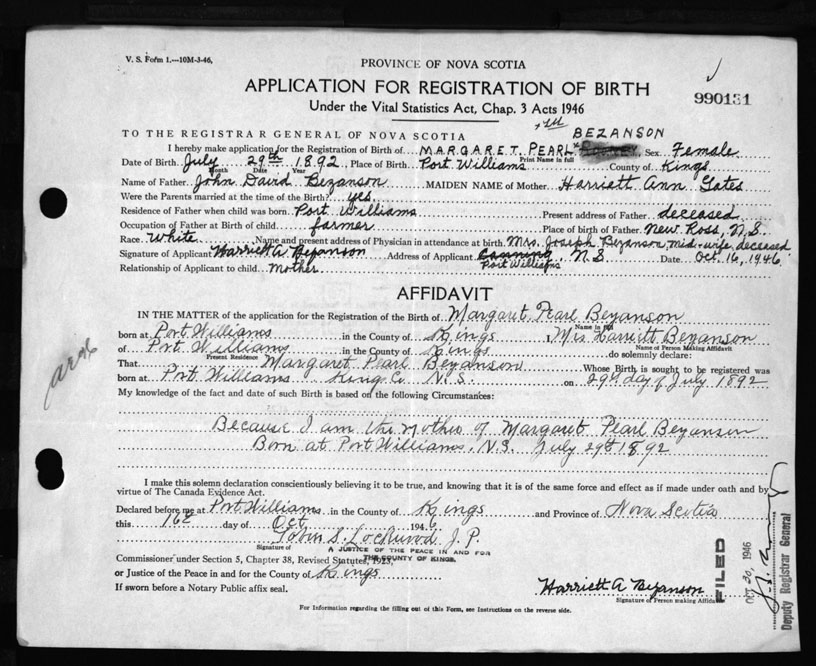 V. S. Form 1.—10M-3-46.
PROVINCE OF NOVA SCOTIA
APPLICATION FOR REGISTRATION OF BIRTH
990131
Under the Vital Statistics Act, Chap. 3 Acts 1946
TO THE REGISTRAR GENERAL OF NOVA SCOTIA
BEZANSON
I hereby make application for the Registration of Birth of MARGARET PEARL Sex Female
Print Name in full
Date of Birth July 29th 1892 Place of Birth Port Williams County of Kings
Month Date Year
Name of Father John David Bezanson MAIDEN NAME of Mother Harriett Ann Gates
Were the Parents married at time of the Birth? yes
Residence of Father when child was born Port Williams Present address of Father deceased
Occupation of Father at Birth of child farmer Place of birth of Father New Ross, N.S.
Race White Name and present address of Physician in attendance at birth Mrs. Joseph Bezanson, mid-wife, deceased
Signature of Applicant Harriett A Bezanson Address of Applicant Canning, N.S. Date Oct. 16, 1946
Port Williams
Relationship of Applicant to child Mother
AFFIDAVIT
IN THE MATTER of the application for the Registration of the Birth of Margaret Pearl Bezanson
Name in full
born at Port Williams in the County of Kings, Mrs Harriett Bezanson
Name of Person Making Affidavit
of Port Williams in the County of Kings do solemnly declare:
Present Residence
That Margaret Pearl Bezanson Whose Birth is sought to be registered was
born at Port Williams Kings Co N.S. on 29th day of July 1892
My knowledge of the fact and date of such Birth is based on the following Circumstances:
Because I am the Mother of Margaret Pearl Bezanson
Born at Port Williams, N.S. July 29th 1892
I make this solemn declaration conscientiously believing it to be true, and knowing that it is of the same force and effect as if made under oath and by
virtue of The Canada Evidence Act.
Declared before me at Port Williams in the County of Kings and Province of Nova Scotia
this 16th day of Oct 1946
John S. Lockwood J.P.
Signature of
A JUSTICE OF THE PEACE IN AND FOR
Commissioner under Section 5, Chapter 38, Revised Statutes, 1923,
THE COUNTY OF KINGS.
or Justice of the Peace in and for the County of Kings
If sworn before a Notary Public affix seal.
Harriett A Bezanson
Signature of Person making Affidavit
For Information regarding the filling out of this Form, see Instructions on the reverse side.
FILED
OCT 30, 1946
Deputy Registrar General